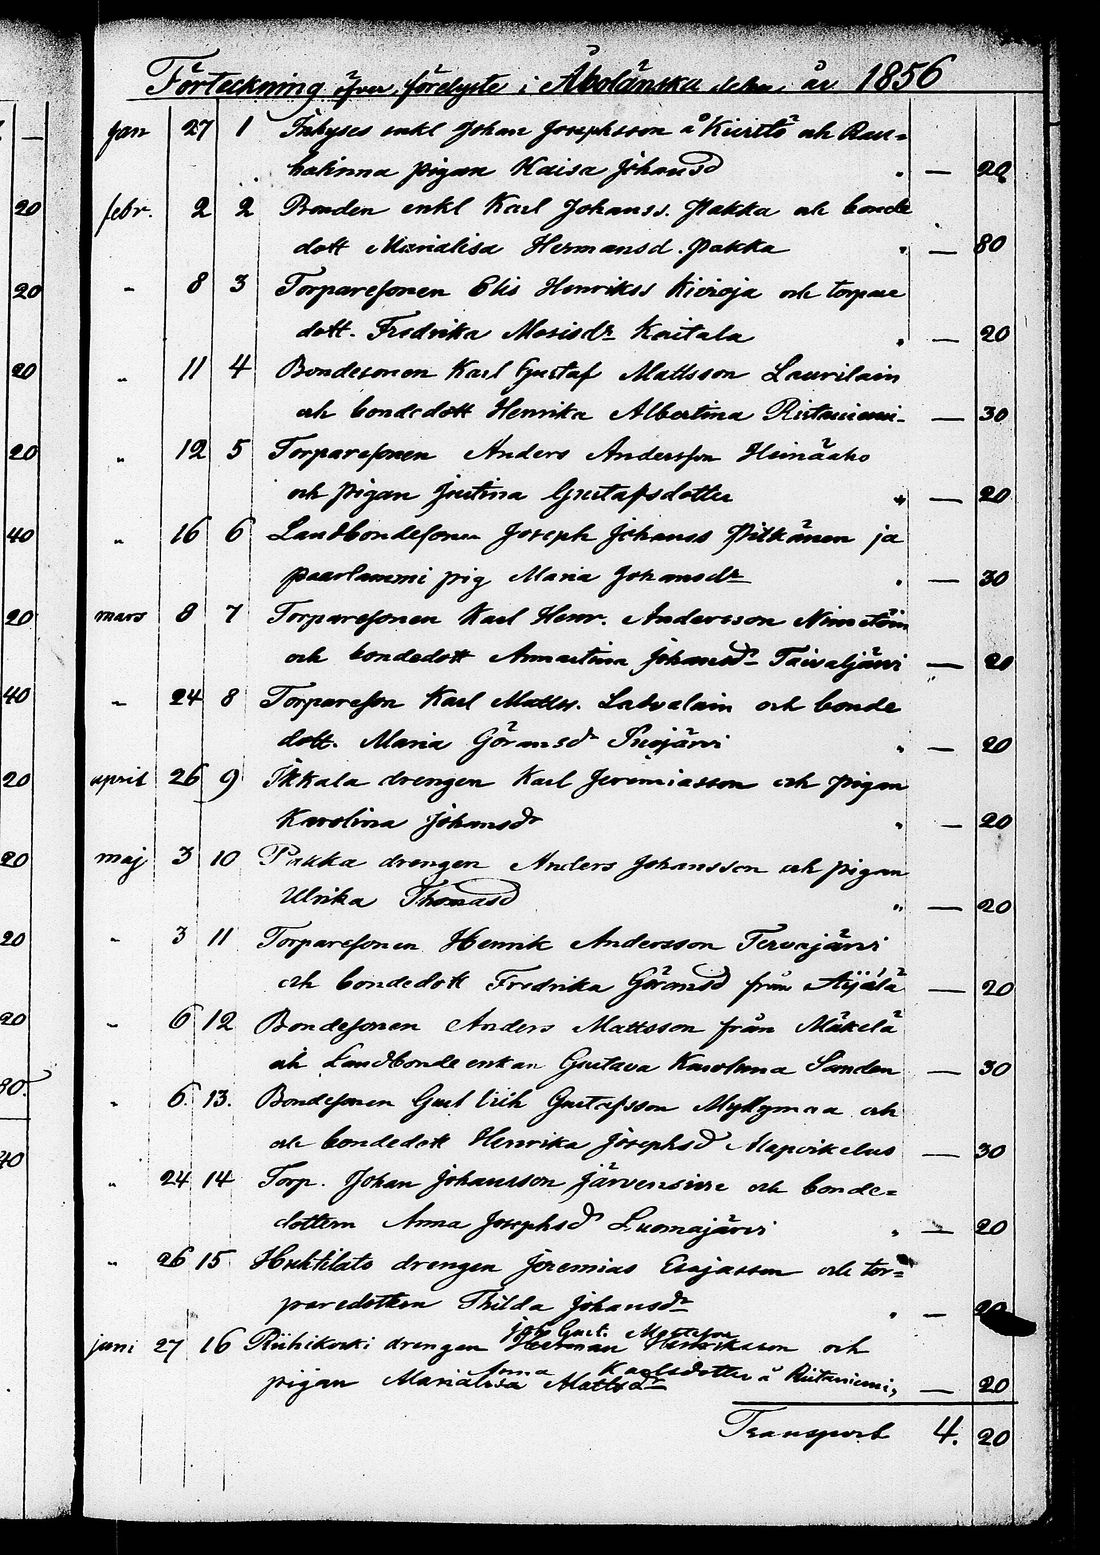 Förteckning öfver förelyste i Åbolänska delen år 1856
jan 27 1 Inhyses enkl Johan Josephsson å och Rau=
halinna pigan Kaisa Johansd " — 20
20 febr. 2 2 Bonden enkl Karl Johanss. Pakka och bonde
dott Marialisa Hermansd. Pakka " — 80
20 " 8 3 Torparesonen Elis Henrikss Kivioja och torpare
dott. Fredrika Mosisdr Kaitala " — 20
20 " 11 4 Bondesonen Karl Gustaf Mattsson Laurilain
och bondedott Henrika Albertina Ristaniemi — 30
20 " 12 5 Torparesonen Anders Andersson Heinäaho
och pigan Justina Gustafsdotter " — 20
40 " 16 6 Landbondesonen Joseph Johanss Pitkänen ja
paarlammi pig Maria Johansdr " — 30
20 mars 8 7 Torparesonen Karl Henr. Andersson
och bondedott Annastina Johansdr Taivaljärvi — 20
40 " 24 8 Torpareson Karl Matts. Latvalain och bonde
dott. Maria Göransdr " — 20
20 april 26 9 Ikkala drengen Karl Jeremiasson och pigan
Karolina Johansdr " — 20
20 maj 3 10 Pakka drengen Anders Johansson och pigan
Ulrika Thomasd " — 20
20 " 3 11 Torparesonen Henrik Andersson Tervajärvi
och bondedott Fredrika Göransd från Äijälä — 20
20 " 6 12 Bondesonen Anders Mattsson från Mäkelä
och Landbonde enkan Gustava Karolina Sanden — 30
80. " 6. 13. Bondesonen Gust Erik Gustafsson Myllymaa och
40 och bondedott Henrika Josephsd — 30
" 24 14 Torp. Johan Johansson Järvensivu och bonde=
dottern Anna Josephsd Luomajärvi " — 20
" 26 15 Huhtilats drengen Jeremias Esajasson och tor=
paredottern Thilda Johansdr " — 20
Joh Gust. Mattsson
juni 27 16 Riihikoski drengen Herman Henriksson och
Anna Karlsdotter å Riitaniemi,
pigan Marialisa Mattsdr — 20
Transport 4. 20